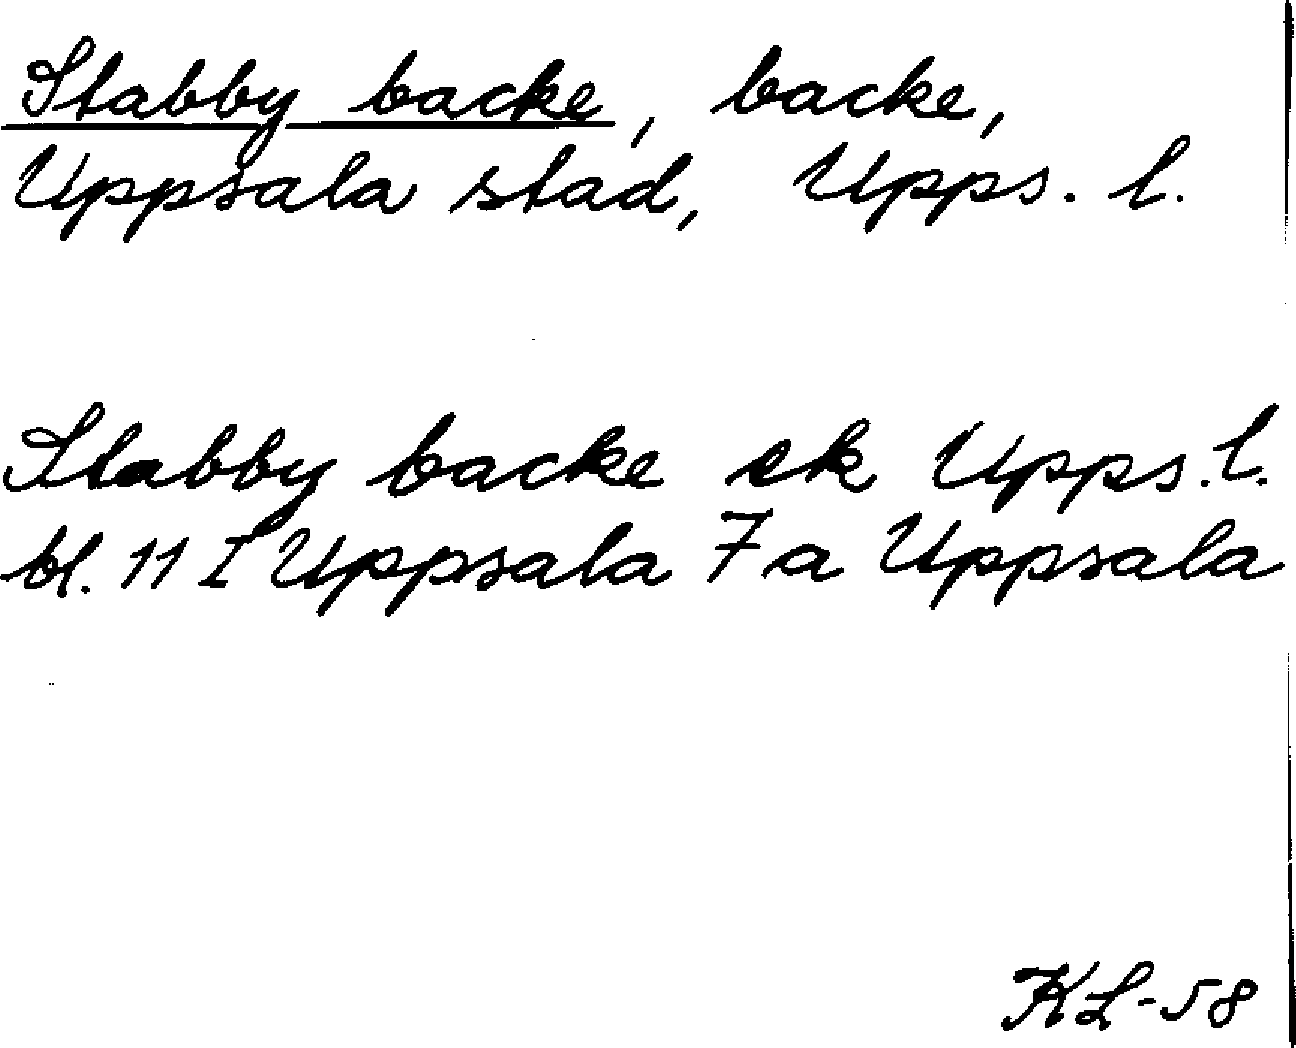 Stabby backe, backe,
Uppsala stad, Upps. l.
Stabby backe ek Upps. l.
bl. 11 I Uppsala 7a Uppsala
KL-58